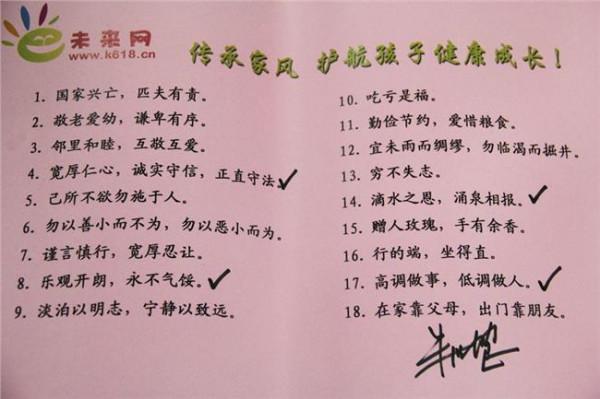 未来网
www.k618.cn
传承家风 护航孩子健康成长！
1. 国家兴亡，匹夫有责。
2. 敬老爱幼，谦卑有序。
3. 邻里和睦，互敬互爱。
4. 宽厚仁心，诚实守信，正直守法。
5. 己所不欲勿施于人。
6. 勿以善小而不为，勿以恶小而为。
7. 谨言慎行，宽厚忍让。
8. 乐观开朗，永不气馁。
9. 淡泊以明志，宁静以致远。
10. 吃亏是福。
11. 勤俭节约，爱惜粮食。
12. 宜未雨而绸缪，勿临渴而掘井。
13. 穷不失志。
14. 滴水之恩，涌泉相报。
15. 赠人玫瑰，手有余香。
16. 行的端，坐得直。
17. 高调做事，低调做人。
18. 在家靠父母，出门靠朋友。